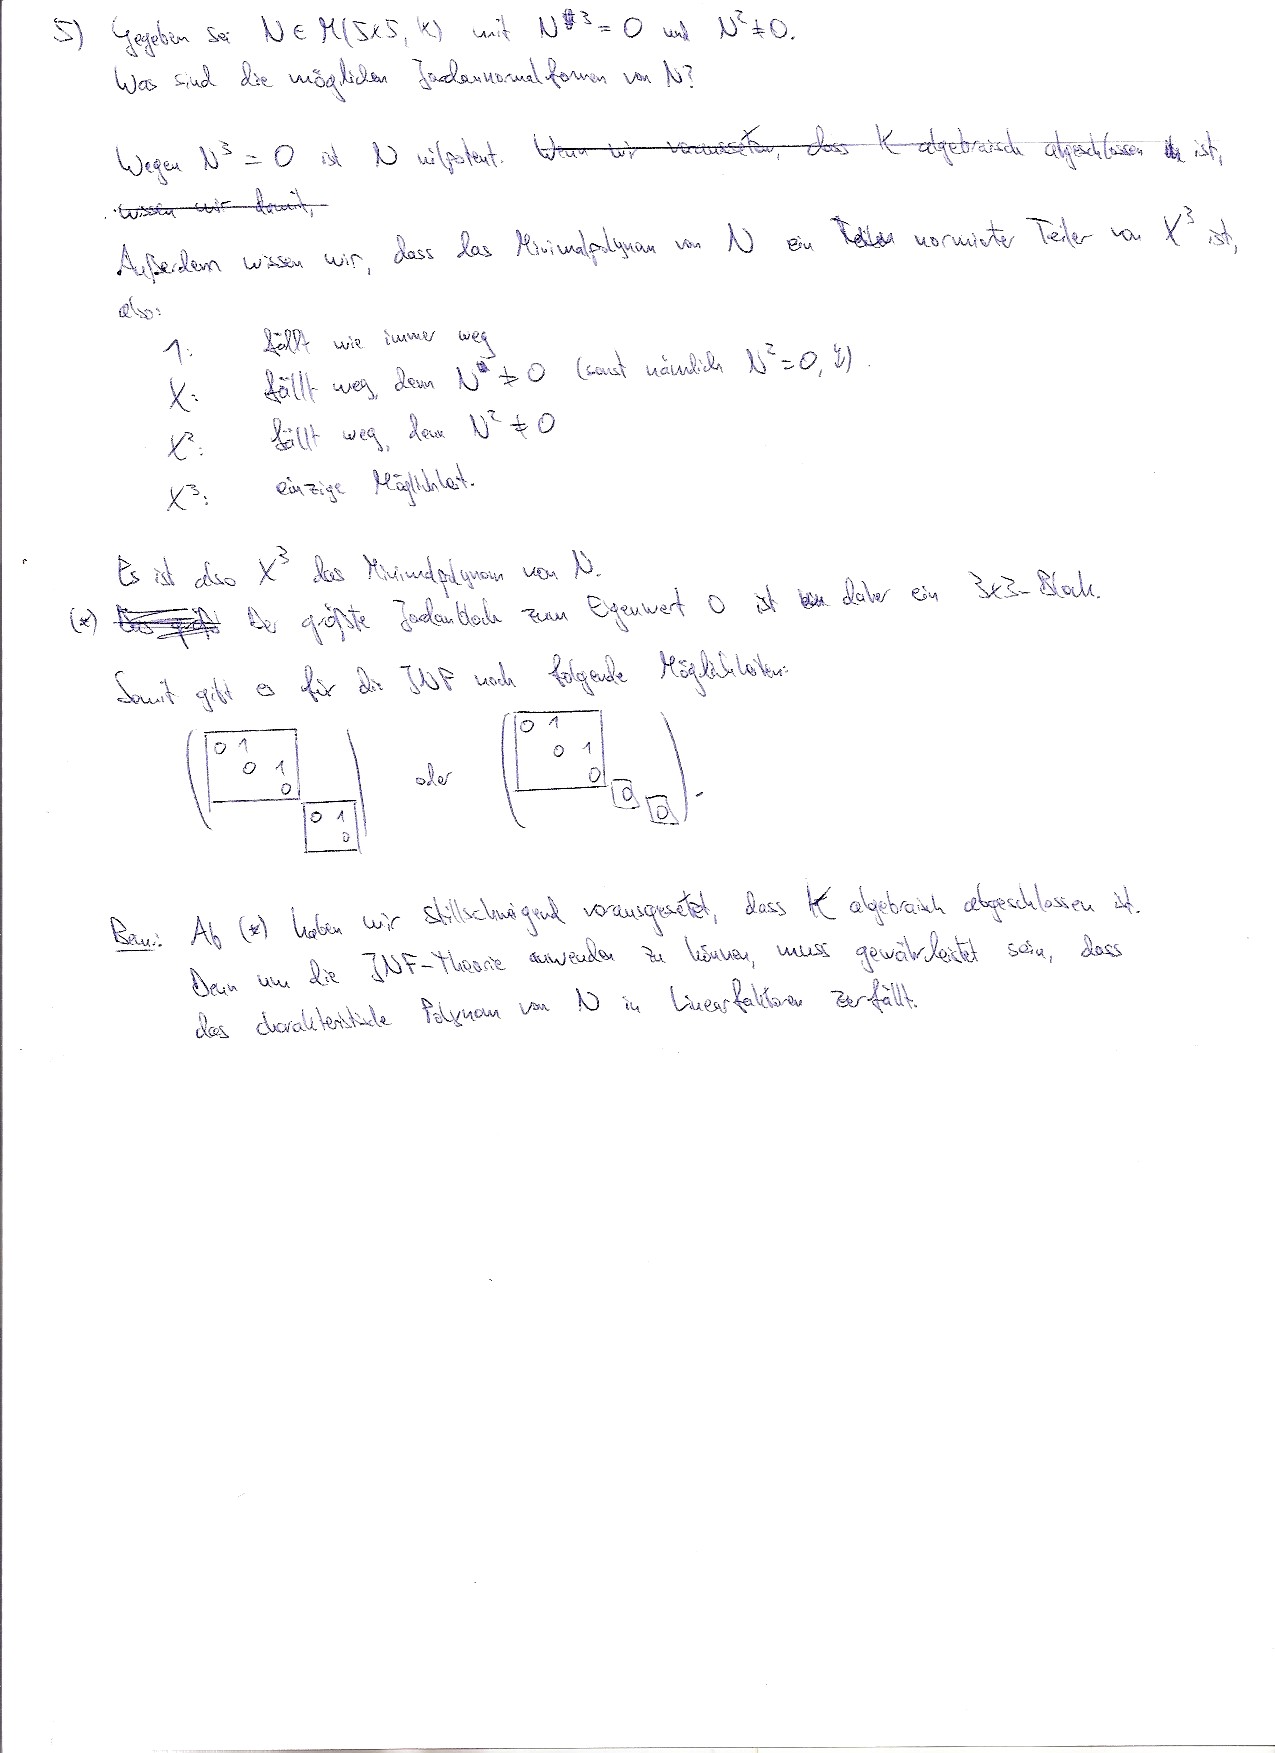 5) Gegeben sei N ∈ M(5x5, K) mit N³ = 0 und N² ≠ 0.
Was sind die möglichen Jordannormalformen von N?
Wegen N³ = 0 ist N nilpotent. Wenn wir voraussetzen, dass K algebraisch abgeschlossen ist,
wissen wir damit,
Außerdem wissen wir, dass das Minimalpolynom von N ein normierter Teiler von X³ ist,
also:
1: fällt wie immer weg
X: fällt weg, denn N ≠ 0 (sonst nämlich N² = 0, ↯).
X²: fällt weg, denn N² ≠ 0
X³: einzige Möglichkeit.
Es ist also X³ das Minimalpolynom von N.
(*) Der größte Jordanblock zum Eigenwert 0 ist daher ein 3x3-Block.
Somit gibt es für die JNF noch folgende Möglichkeiten:
0 1 0 1
0 1 oder 0 1
0 0
0 1 0
0 0
Bem: Ab (*) haben wir stillschweigend vorausgesetzt, dass K algebraisch abgeschlossen ist.
Denn um die JNF-Theorie anwenden zu können, muss gewährleistet sein, dass
das charakteristische Polynom von N in Linearfaktoren zerfällt.